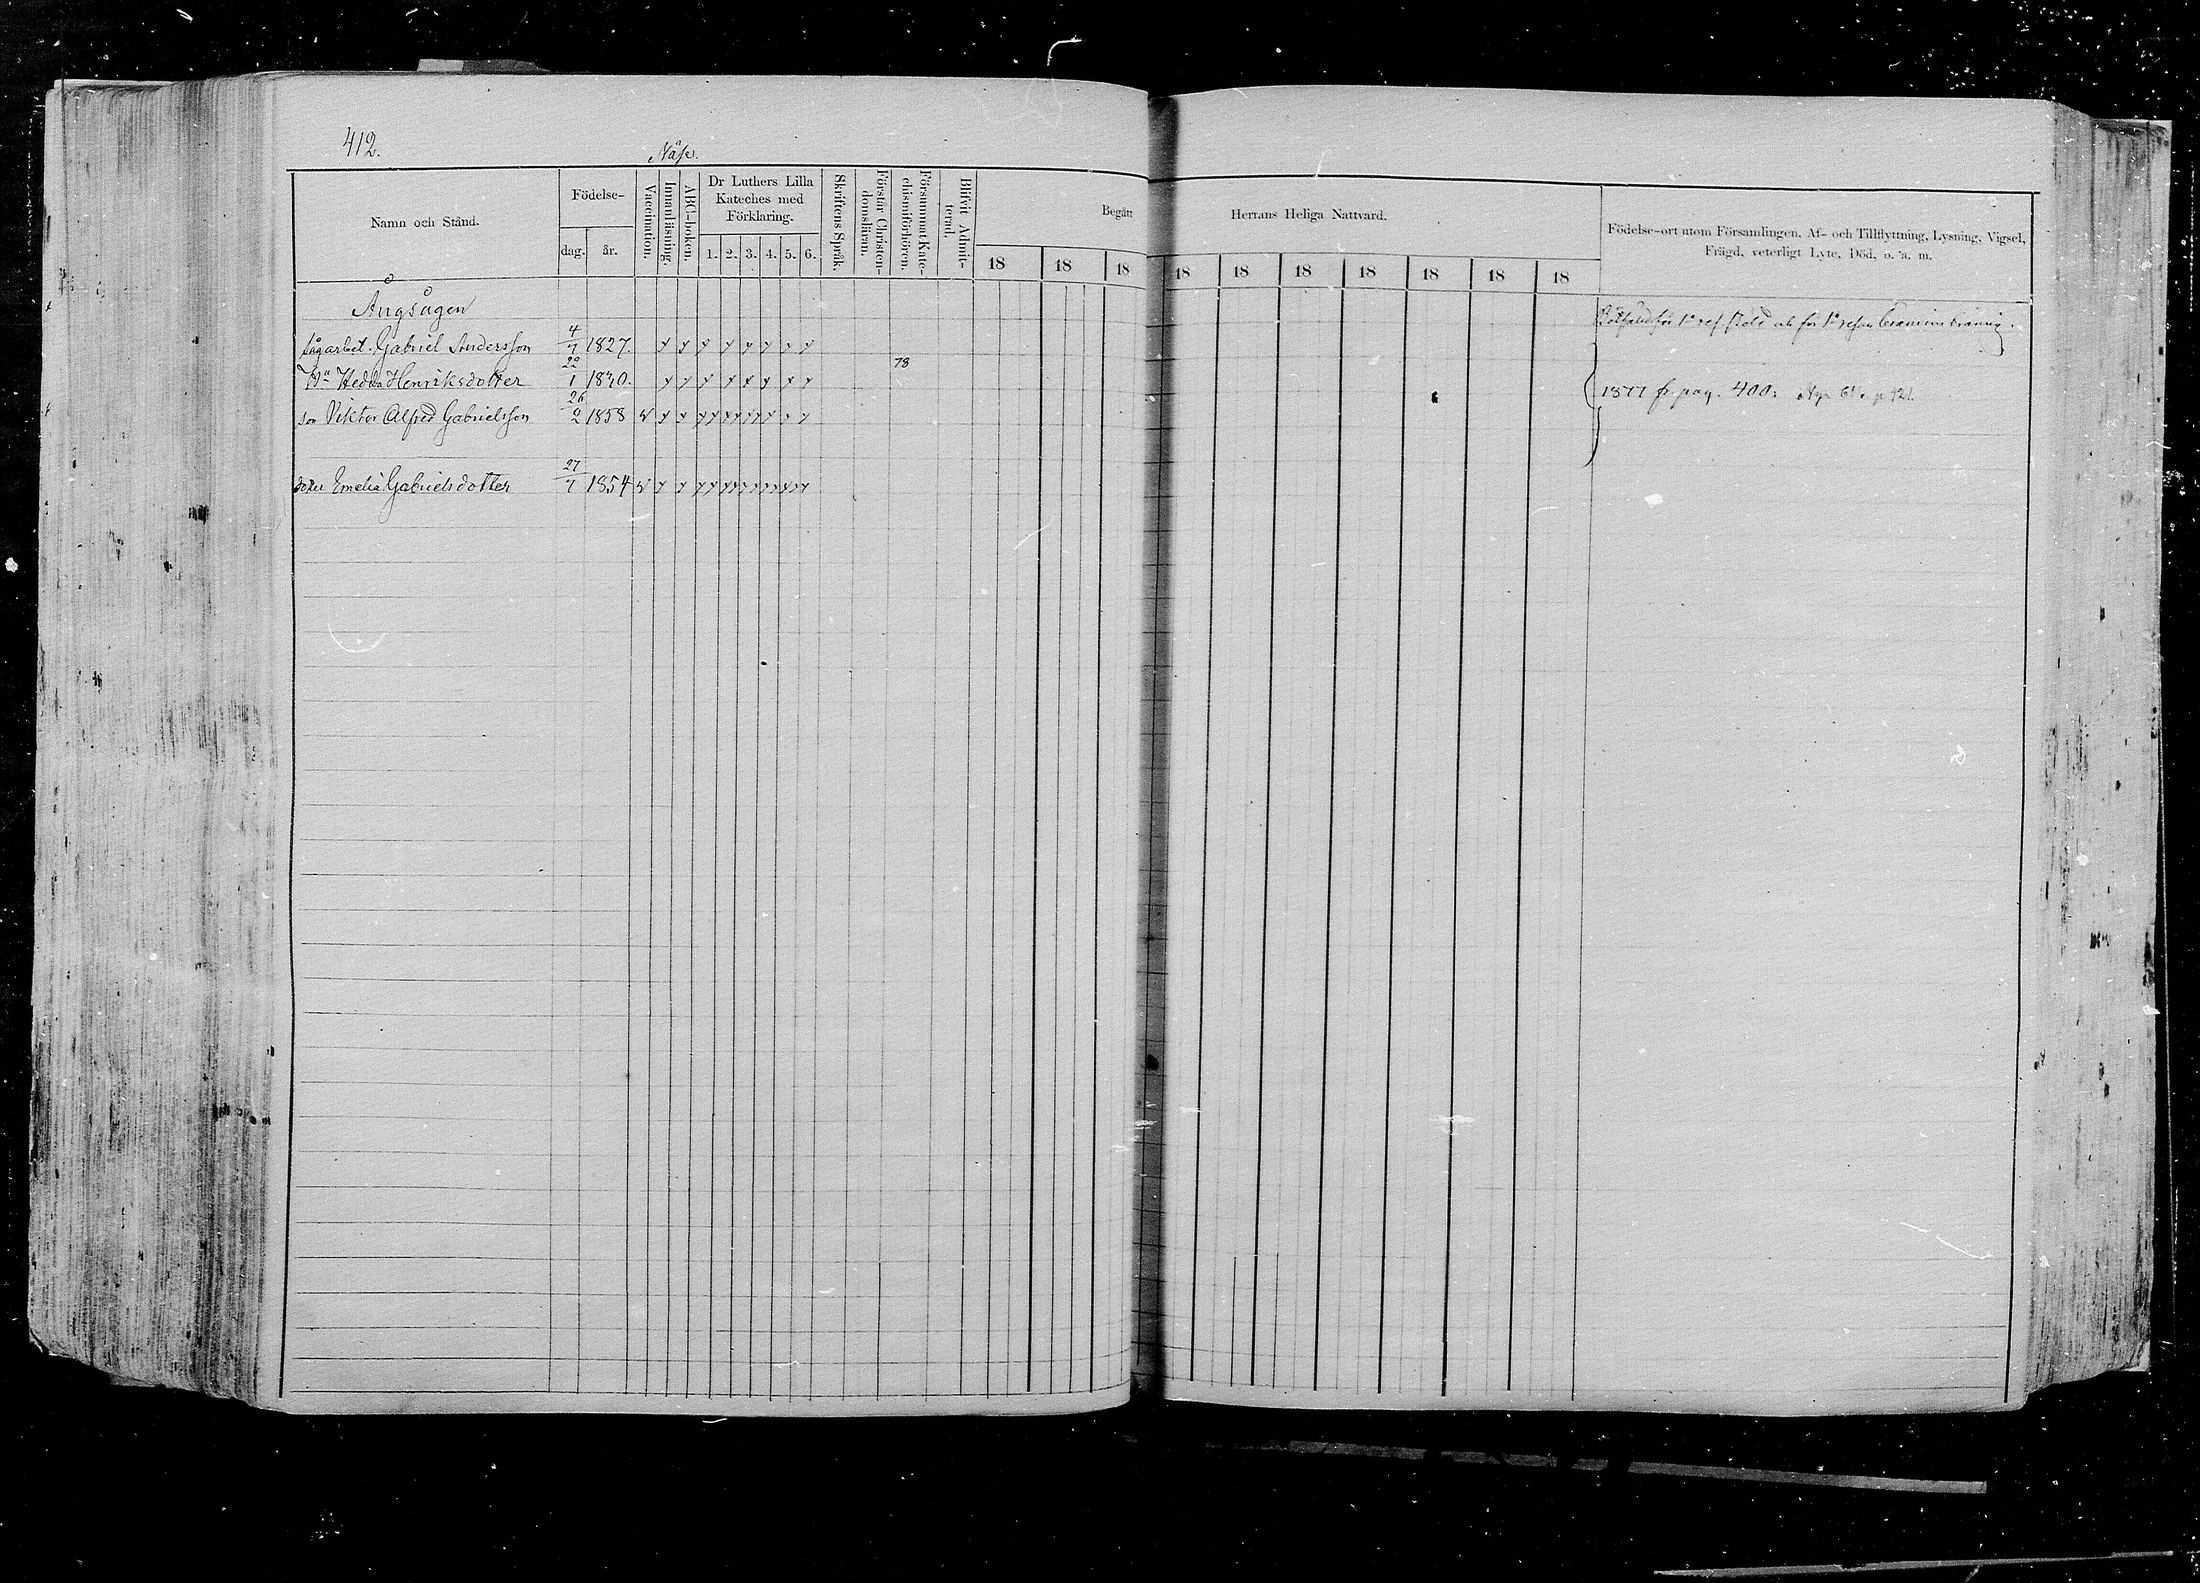 412.
Näse.
Namn och Stånd.
Födelse-
dag.
år.
Vaccination.
Innanläsning.
ABC-boken.
Dr Luthers Lilla
Kateches med
Förklaring.
1. 2. 3. 4. 5. 6.
Skriftens Språk.
Förstår Christen-
domsläran.
Försummat Kate-
chismiförhören.
Blifvit Admit-
terad.
Begått
18 18 18
Herrans Heliga Nattvard.
18 18 18 18 18 18 18
Födelse-ort utom Församlingen, Af- och Tillflyttning, Lysning, Vigsel,
Frägd, veterligt Lyte, Död, o. a. m.
Ångsågen
Bötfäld för 1a res stöld och för 1a resan
Sågarbet. Gabriel Andersson 4/7 1827. x x x x x x x x
78
Hu Hedda Henriksdotter 22/1 1820. x x x x x x x x
1877 fr. pag. 400.
son Viktor Alfred Gabrielsson 26/2 1858 v x x xx xx xx x x x
dotter Emelia Gabrielsdotter 27/7 1854 v x x xx xx xx xx xx